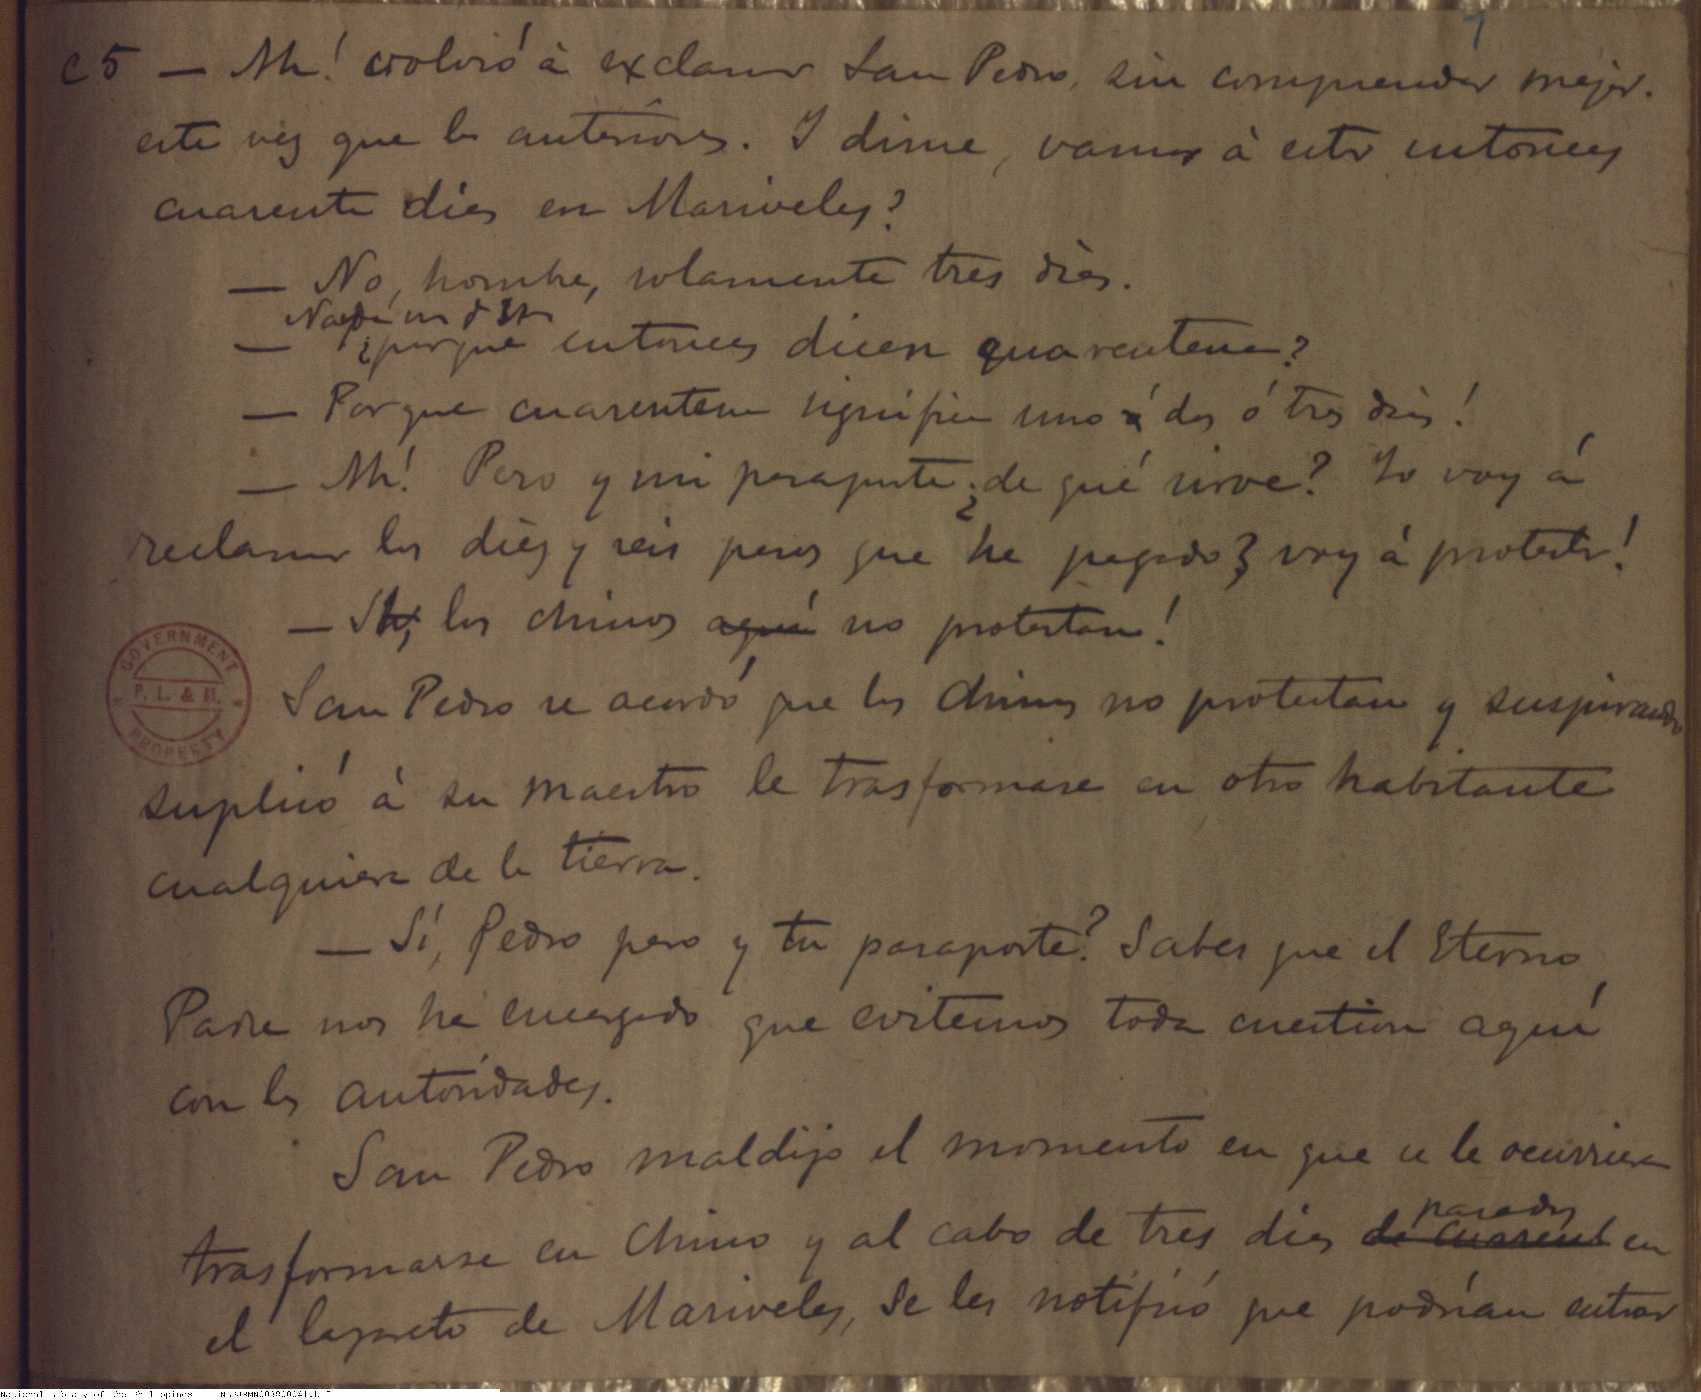 c5 — Ah! volvió à exclamar San Pedro, sin comprender mejor
esta vez que las anteriores. Y dime, vamos à estar entonces
cuarenta dias en Mariveles?
— No, hombre, solamente tres dias.
— ¿porque entonces dicen quarentena?
— Porque cuarentena significa uno ó dos ó tres dias!
— Ah! Pero y mi pasaporte ¿de qué sirve? Yo voy á
reclamar los diez y seis pesos que he pagado, voy á protestar!
— St, los chinos aquí no protestan!
GOVERNMENT
P. L. & M.
PROPERTY
San Pedro se acordó que los chinos no protestan y suspirando
suplicó á su maestro le trasformase en otro habitante
cualquiera de la tierra.
— Sí, Pedro pero y tu pasaporte? Sabes que el Eterno
Padre nos ha encargado que evitemos toda cuestion aquí
con las autoridades.
San Pedro maldijo el momento en que se le ocurriera
pasados
trasformarse en Chino y al cabo de tres dias de en
el lazareto de Mariveles, se les notificó que podrían entrar
National Library of the Philippines